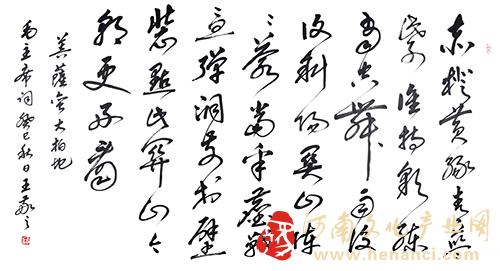 赤橙黄緑青蓝
紫谁持彩练
当空舞雨後
復斜阳関山阵
々苍当年鏖战
急弹洞前村壁
装點此関山今
朝更好看
菩薩蛮大柏地
毛主席词癸巳秋日王
河南文化产业网
www.henanci.com